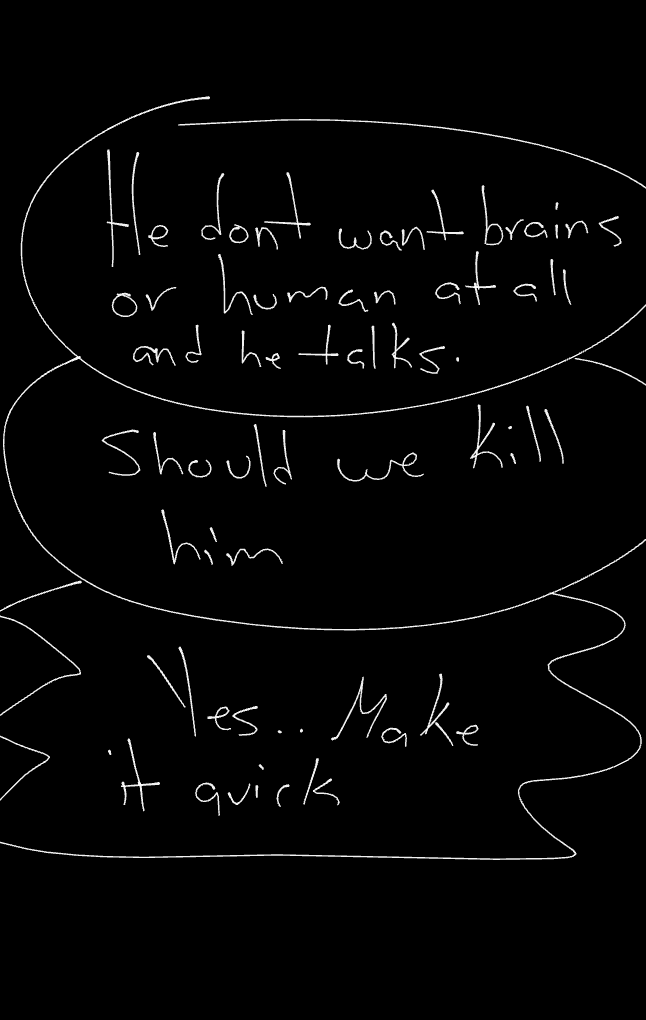 He dont want brains
or human at all
and he talks.
Should we kill
him
Yes.. Make
it quick